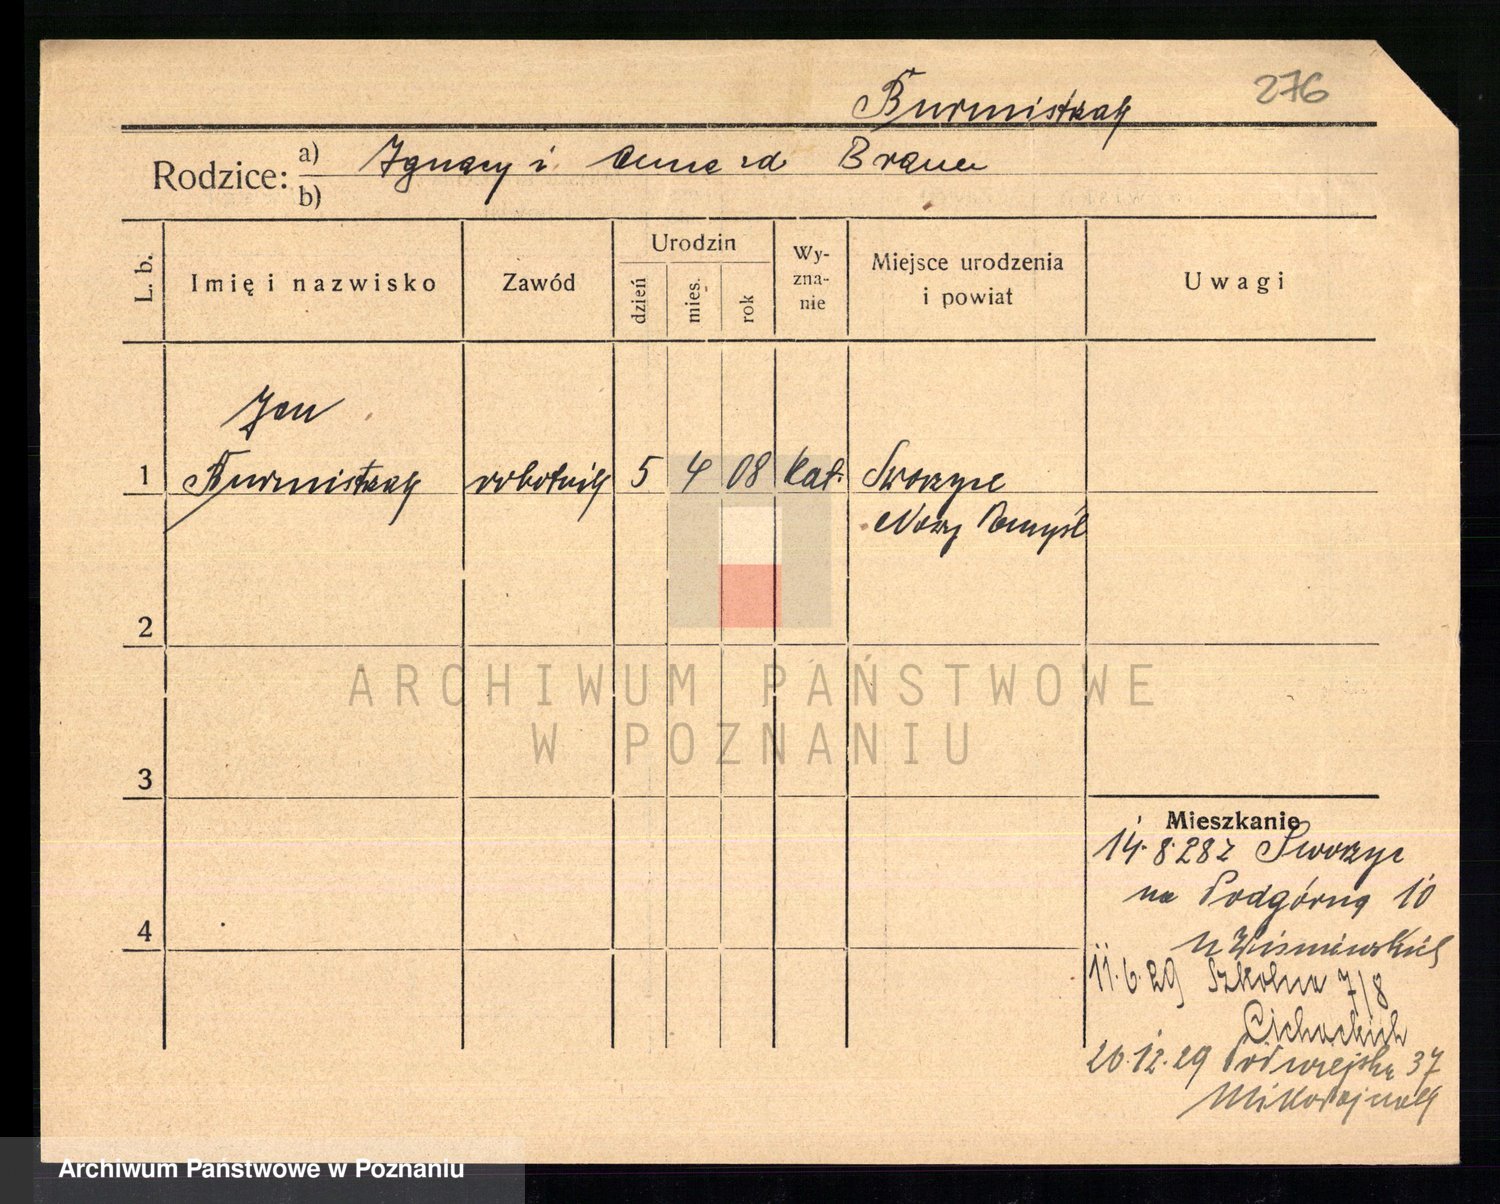 Burmistrzak
276
Rodzice: a) Ignacy i Anna zd Braun
b)
L. b.
Imię i nazwisko
Zawód
Urodzin
dzień
mies.
rok
Wy-
zna-
nie
Miejsce urodzenia
i powiat
Uwagi
Jan
1 Burmistrzak robotnik 5 4 08 kat. Sworzyce
Nowy Tomyśl
2
3
4
ARCHIWUM PAŃSTWOWE
W POZNANIU
Mieszkanie
14.8.28 z Sworzyc
na Podgórną 10
u Wiśniewskich
11.6.29 Szkolna 7/8
Cichockich
20.12.29 37
Mikołajczak
Archiwum Państwowe w Poznaniu